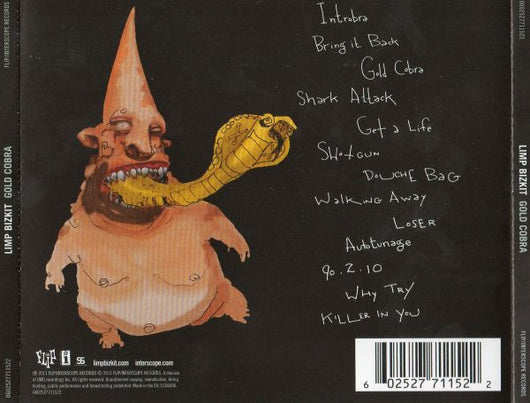 FLIP/INTERSCOPE RECORDS
0602527711522
LIMP BIZKIT GOLD COBRA
Introbra
Bring it Back
Gold Cobra
Shark Attack
Get a Life
Shotgun
Douche Bag
Walking Away
Loser
Autotunage
90.2.10
Why Try
Killer in You
FLIP
limpbizkit.com
interscope.com
6 02527 71152 2
0602527711522
LIMP BIZKIT GOLD COBRA
FLIP/INTERSCOPE RECORDS